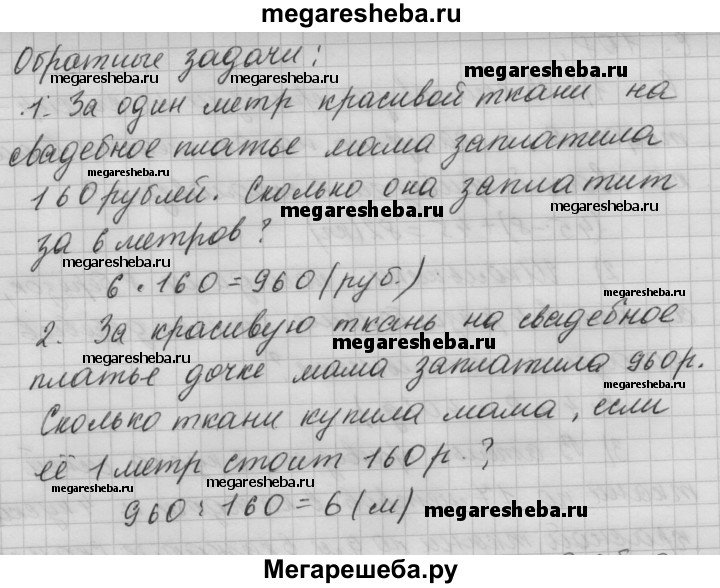 megaresheba.ru
Обратные задачи:
megaresheba.ru megaresheba.ru megaresheba.ru
1. За один метр красивой ткани на
свадебное платье мама заплатила
megaresheba.ru megaresheba.ru
160 рублей. Сколько она заплатит
megaresheba.ru megaresheba.ru
за 6 метров?
megaresheba.ru
6 · 160 = 960 (руб.)
megaresheba.ru
2. За красивую ткань на свадебное
megaresheba.ru megaresheba.ru
платье дочке мама заплатила 960 р.
megaresheba.ru
Сколько ткани купила мама, если
её 1 метр стоит 160 р.?
megaresheba.ru megaresheba.ru
960 : 160 = 6 (м)
megaresheba.ru
Мегарешеба.ру